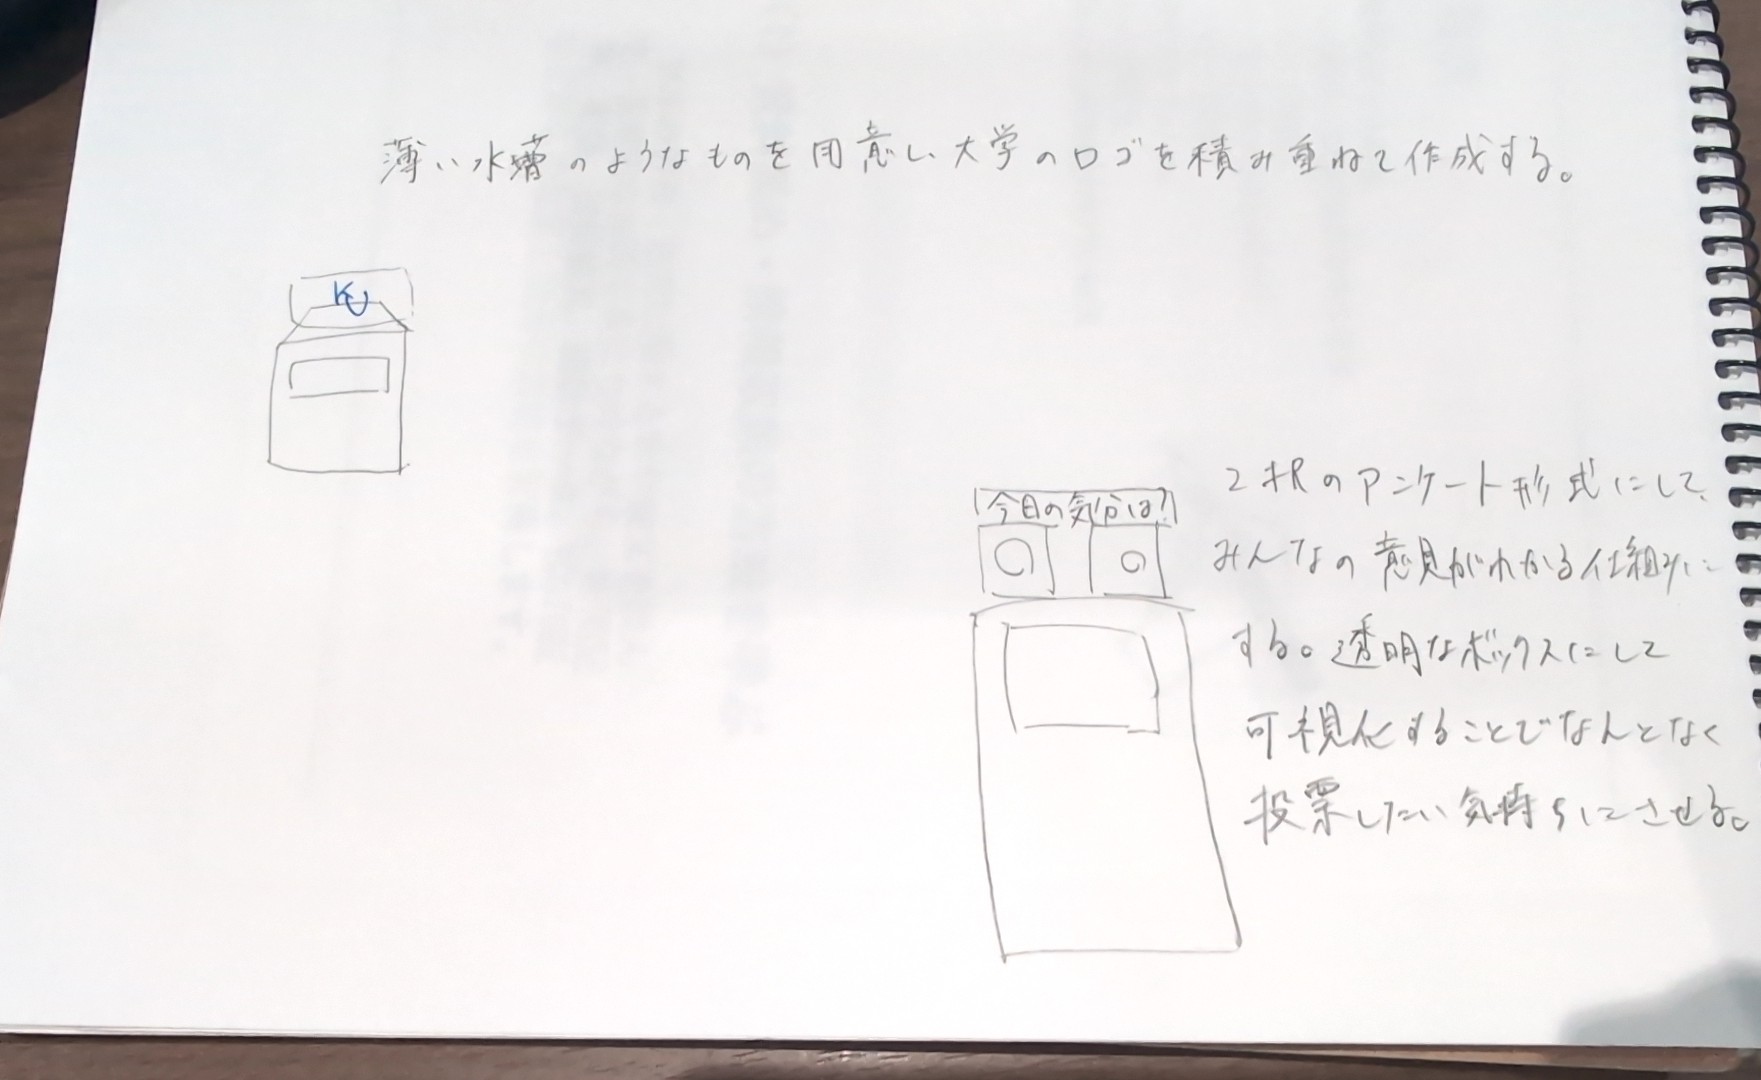 薄い水槽のようなものを用意し大学のロゴを積み重ねて作成する。
KU
今日の気分は?
2択のアンケート形式にして、
みんなの意見がわかる仕組みに
する。透明なボックスにして
可視化することでなんとなく
投票したい気持ちにさせる。